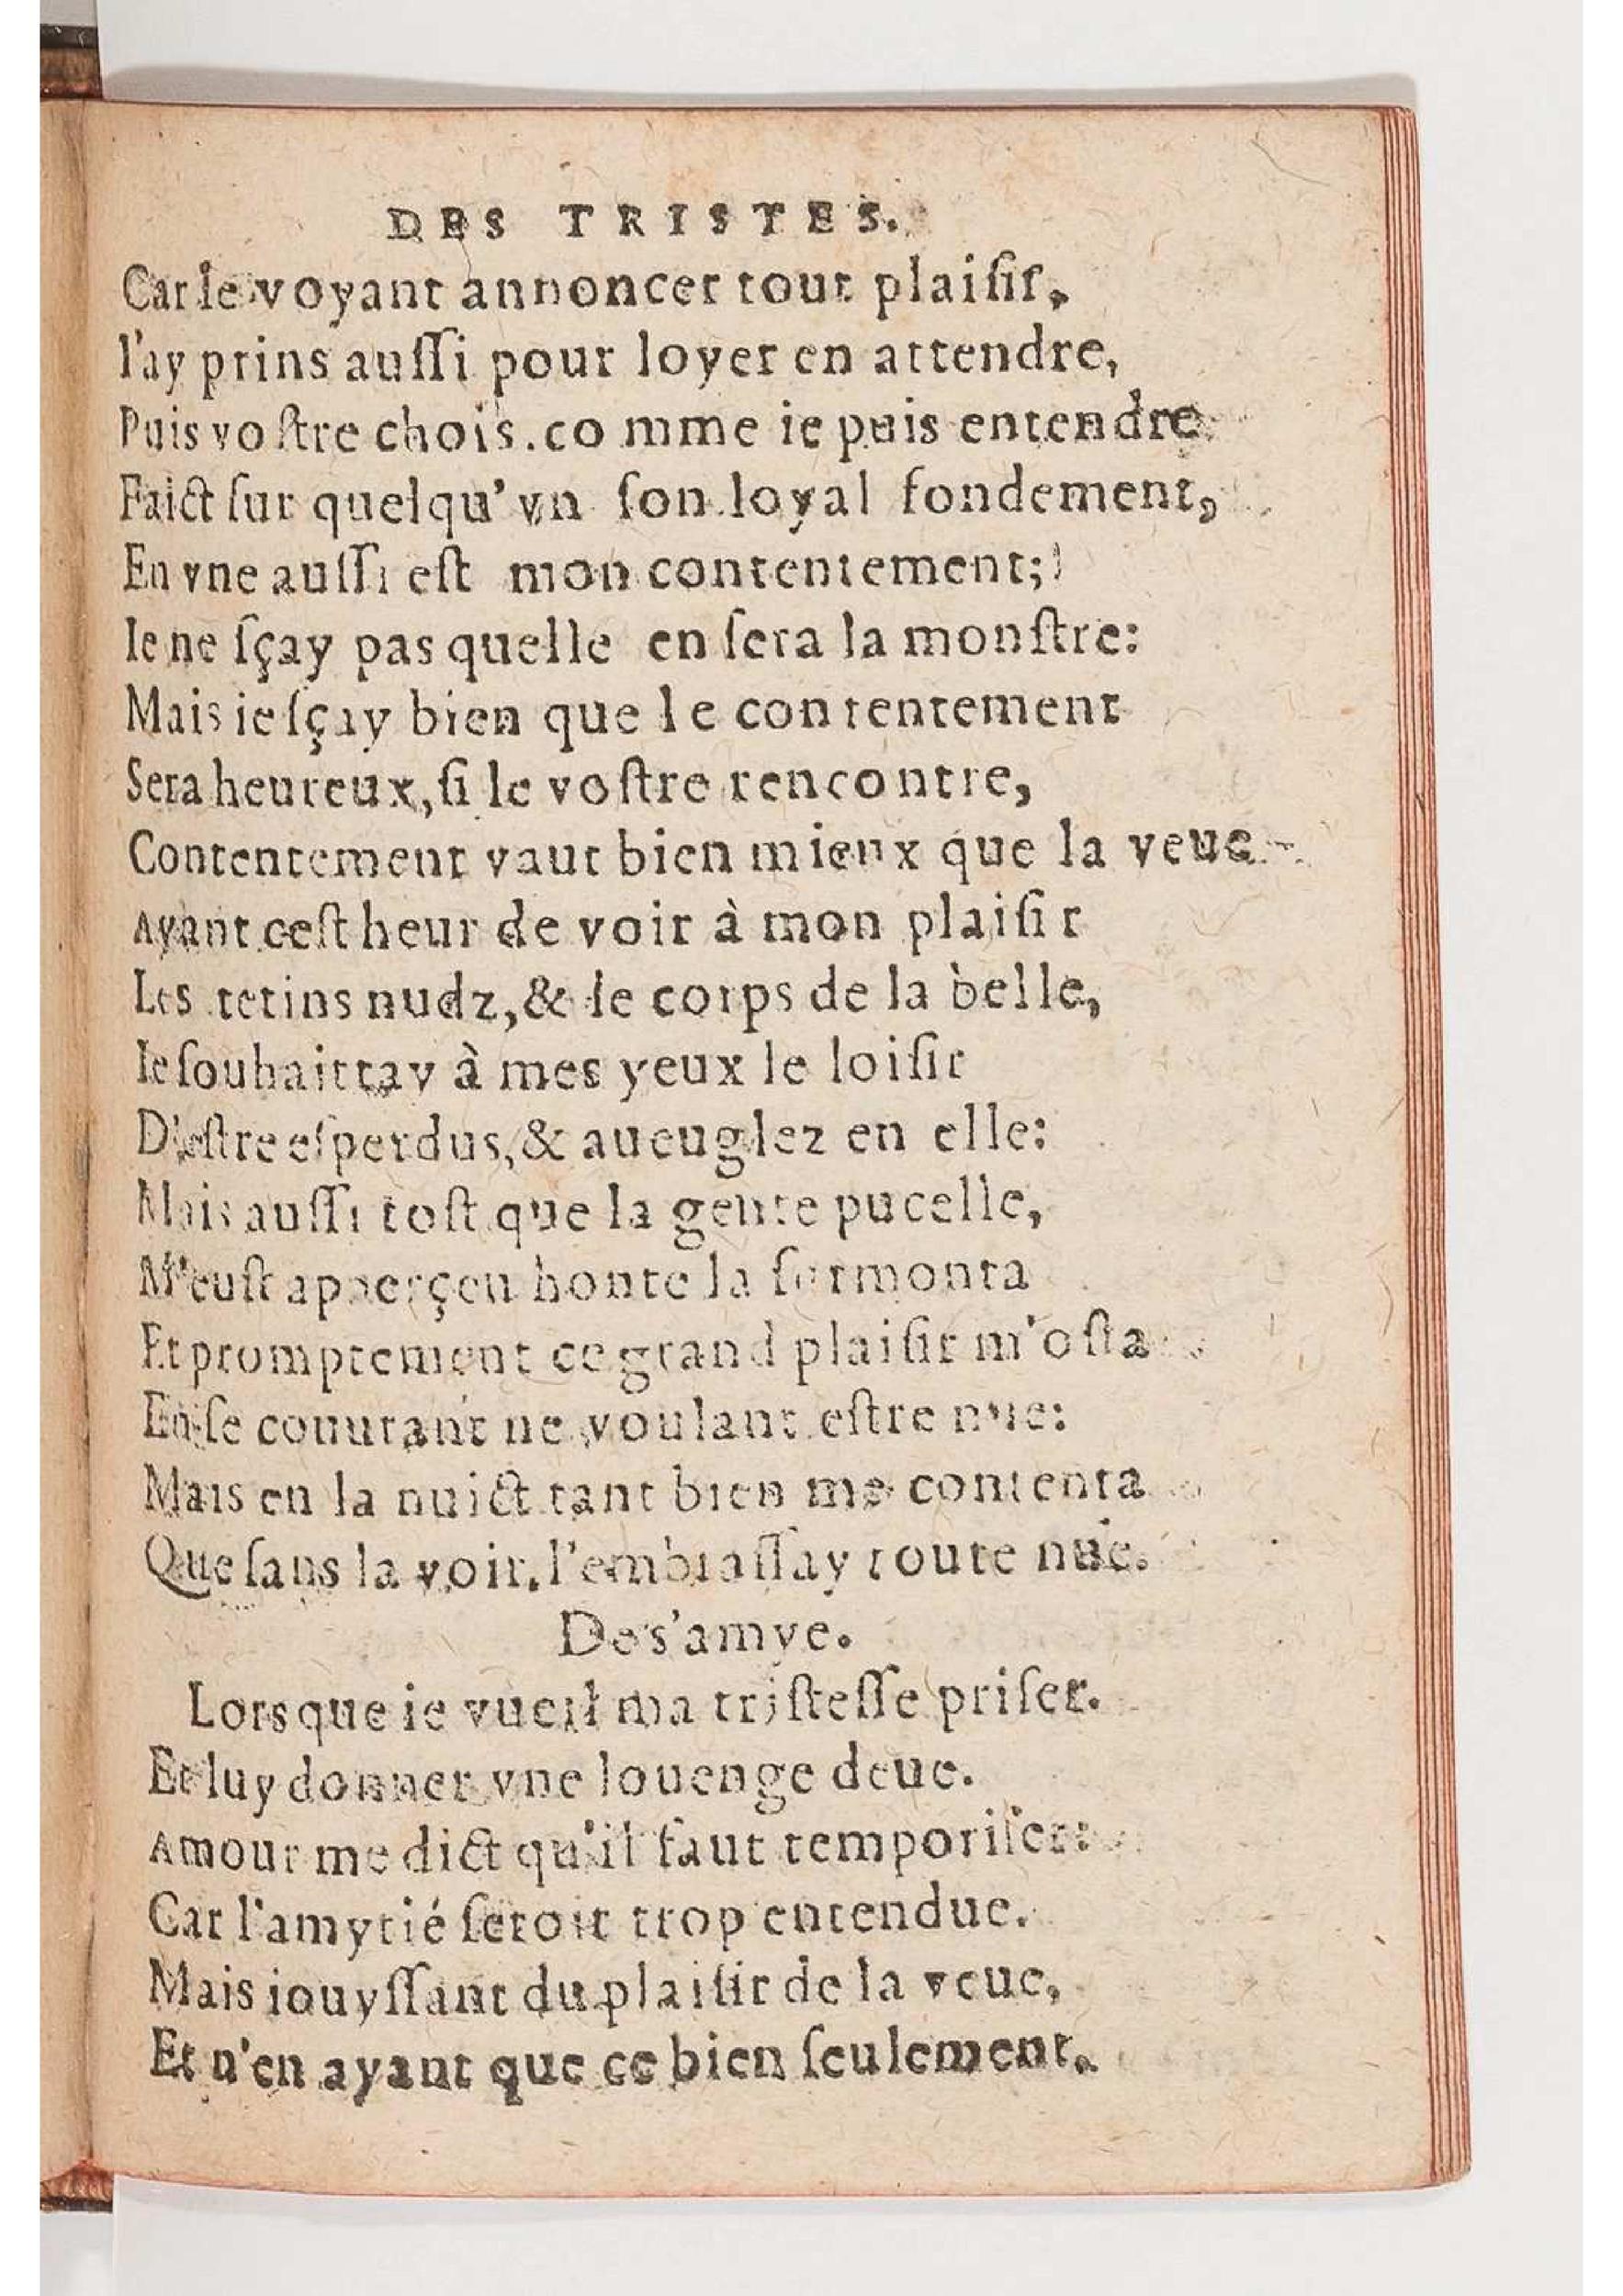 DES TRISTES.
Car le voyant annoncer tout plaiſir,
I'ay prins auſſi pour loyer en attendre,
Puis voſtre chois. comme ie puis entendre
Faict ſur quelqu'vn ſon loyal fondement,
En vne auſſi eſt mon contentement;
Ie ne ſçay pas quelle en ſera la monſtre:
Mais ie ſçay bien que le contentement
Sera heureux, ſi le voſtre rencontre,
Contentement vaut bien mieux que la veue
Ayant ceſt heur de voir à mon plaiſir
Les tetins nudz, & le corps de la belle,
Ie ſouhaittay à mes yeux le loiſir
D'eſtre eſperdus, & aueuglez en elle:
Mais auſſi toſt que la gente pucelle,
M'euſt apperçeu honte la ſurmonta
Et promptement ce grand plaiſir m'oſta
En ſe couurant ne voulant eſtre nue:
Mais en la nuict tant bien me contenta
Que ſans la voir. l'embraſſay toute nue.
De s'amye.
Lors que ie vueil ma triſteſſe priſer.
Et luy donner vne louenge deue.
Amour me dict qu'il faut temporiſer:
Car l'amytié ſeroit trop entendue.
Mais iouyſſant du plaiſir de la veue,
Et n'en ayant que ce bien ſeulement.